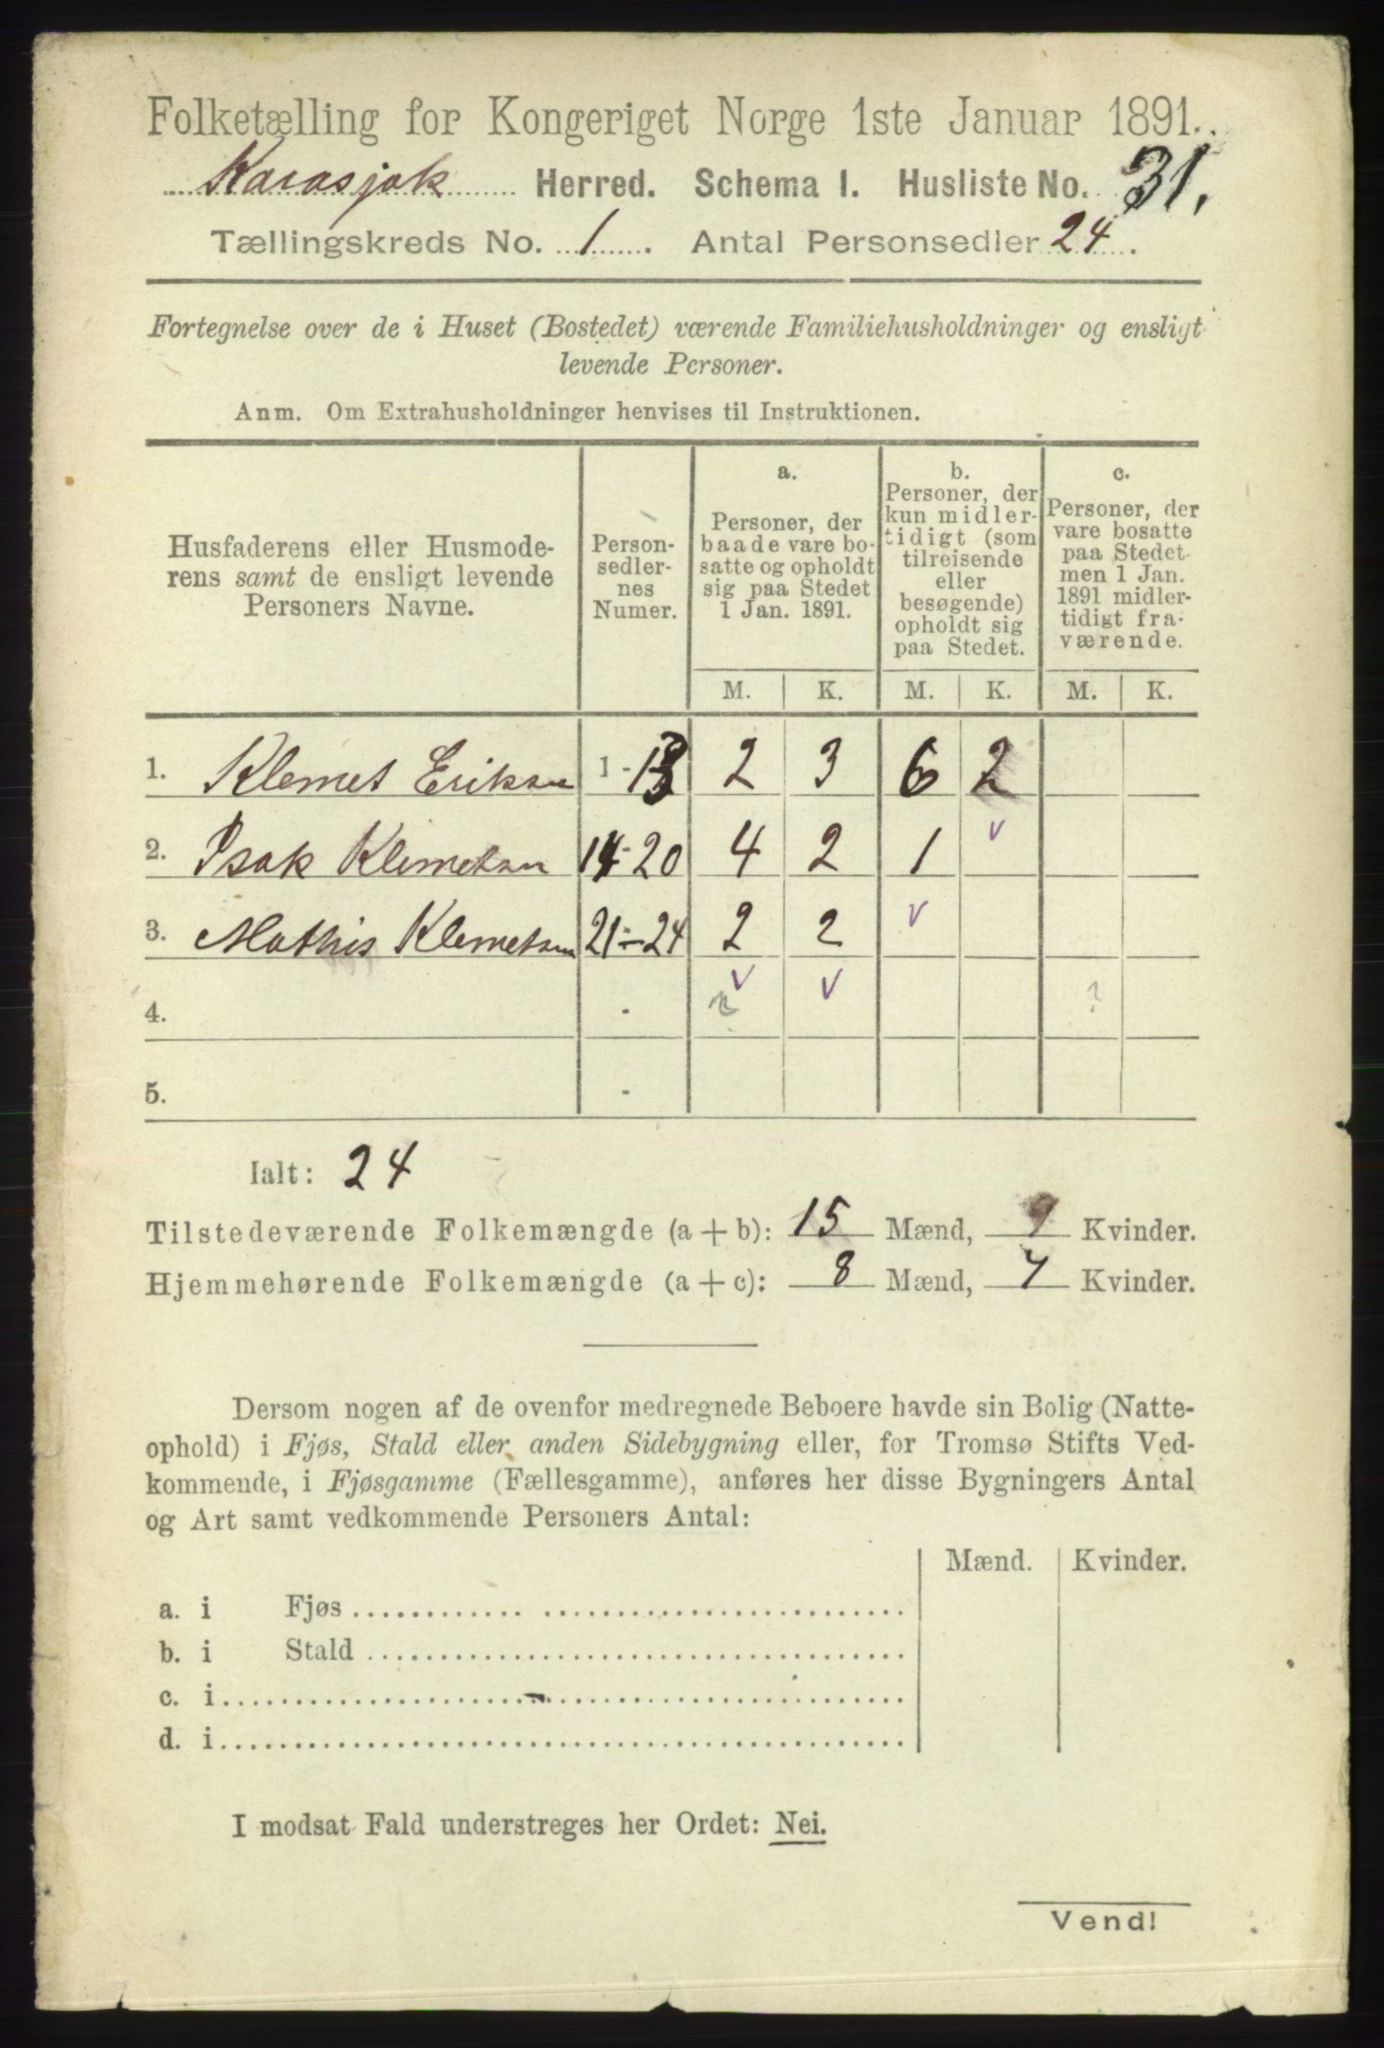 Folketælling for Kongeriget Norge 1ste Januar 1891.
Karasjok Herred. Schema I. Husliste No. 31.
Tællingskreds No. 1. Antal Personsedler 24.
Fortegnelse over de i Huset (Bostedet) værende Familiehusholdninger og ensligt
levende Personer.
Anm. Om Extrahusholdninger henvises til Instruktionen.
Husfaderens eller Husmode-
rens samt de ensligt levende
Personers Navne.
Person-
sedler-
nes
Numer.
a.
Personer, der
baade vare bo-
satte og opholdt
sig paa Stedet
1 Jan. 1891.
b.
Personer, der
kun midler-
tidigt (som
tilreisende
eller
besøgende)
opholdt sig
paa Stedet.
c.
Personer, der
vare bosatte
paa Stedet
men 1 Jan.
1891 midler-
tidigt fra-
værende.
M. K. M. K. M. K.
1. Klemet Eriksen 1-13 2 3 6 2
2. Isak Klemetsen 14-20 4 2 1 v
3. Mathis Klemetsen 21-24 2 2 v
v v
4. - ?
5. -
Ialt: 24
Tilstedeværende Folkemængde (a + b): 15 Mænd, 9 Kvinder.
Hjemmehørende Folkemængde (a + c): 8 Mænd, 7 Kvinder.
Dersom nogen af de ovenfor medregnede Beboere havde sin Bolig (Natte-
ophold) i Fjøs, Stald eller anden Sidebygning eller, for Tromsø Stifts Ved-
kommende, i Fjøsgamme (Fællesgamme), anføres her disse Bygningers Antal
og Art samt vedkommende Personers Antal:
Mænd. Kvinder.
a. i Fjøs
b. i Stald
c. i
d. i
I modsat Fald understreges her Ordet: Nei.
Vend!